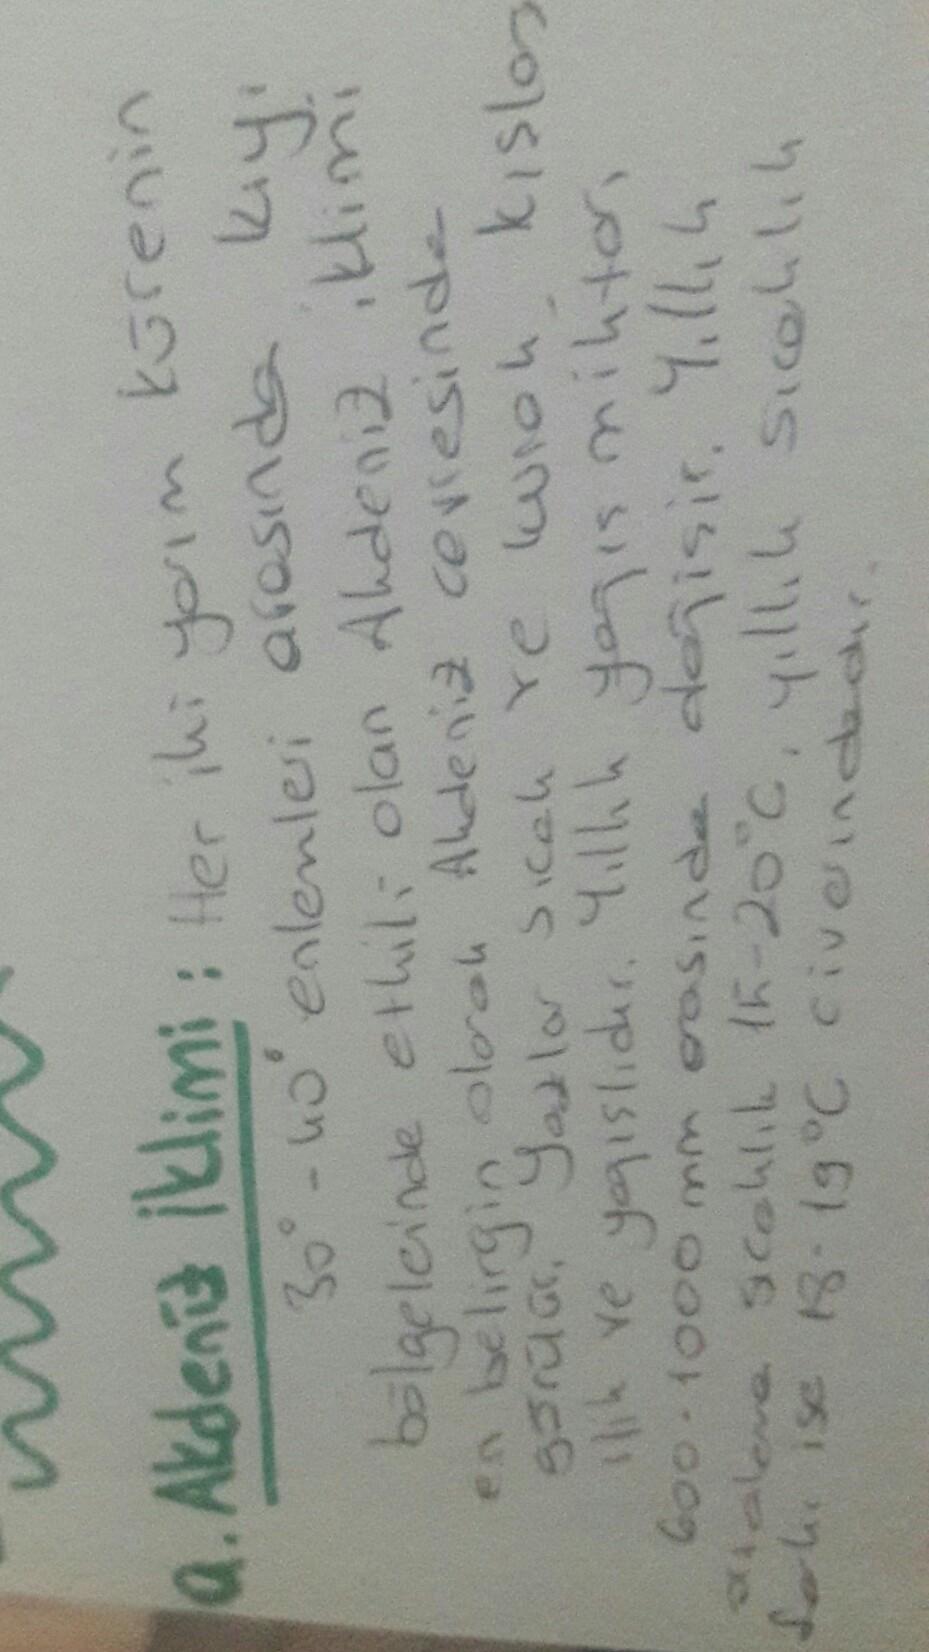 a. Akdeniz iklimi: Her iki yarım kürenin
30° - 40° enlemleri arasında kıyı
bölgelerinde etkili olan Akdeniz iklimi
en belirgin olarak Akdeniz cevresinde
görülür. Yazlar sıcak ve kurak, kıslar
ılık ve yagıslıdır. Yıllık yağıs miktarı
600-1000 mm arasında değisir. Yıllık
sıcaklık 15-20°C, yıllık sıcaklık
farkı ise 18-19°C civarındadır.